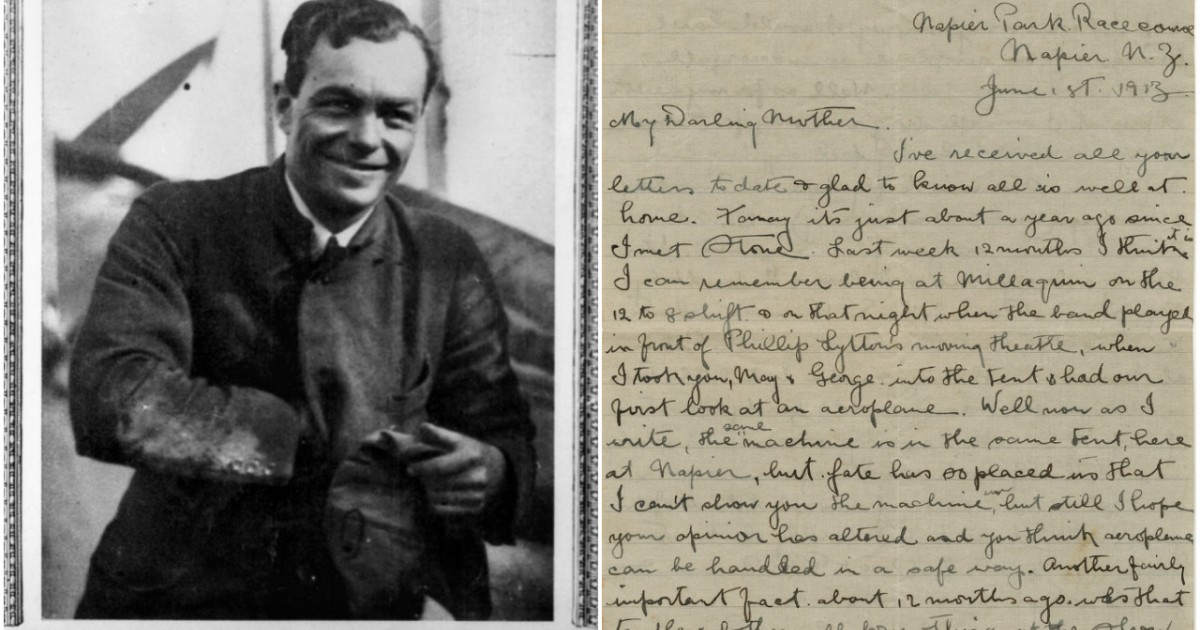 Napier Park Racecourse
Napier N.Z.
June 1st. 1913
My Darling Mother.
I've received all your
letters to date & glad to know all is well at
home. Fancy its just about a year ago since
I met Stone. Last week 12 months I think it is
I can remember being at Millaquin on the
12 to 8 shift & on that night when the band played
in front of Phillip Lytton's moving theatre, when
I took you, May & George into the tent & had our
first look at an aeroplane. Well now as I
write, the same machine is in the same tent, here
at Napier, but fate has so placed us that
I can't show you the machine, but still I hope
your opinion has altered and you think aeroplanes
can be handled in a safe way. Another fairly
important fact. about 12 months ago. was that